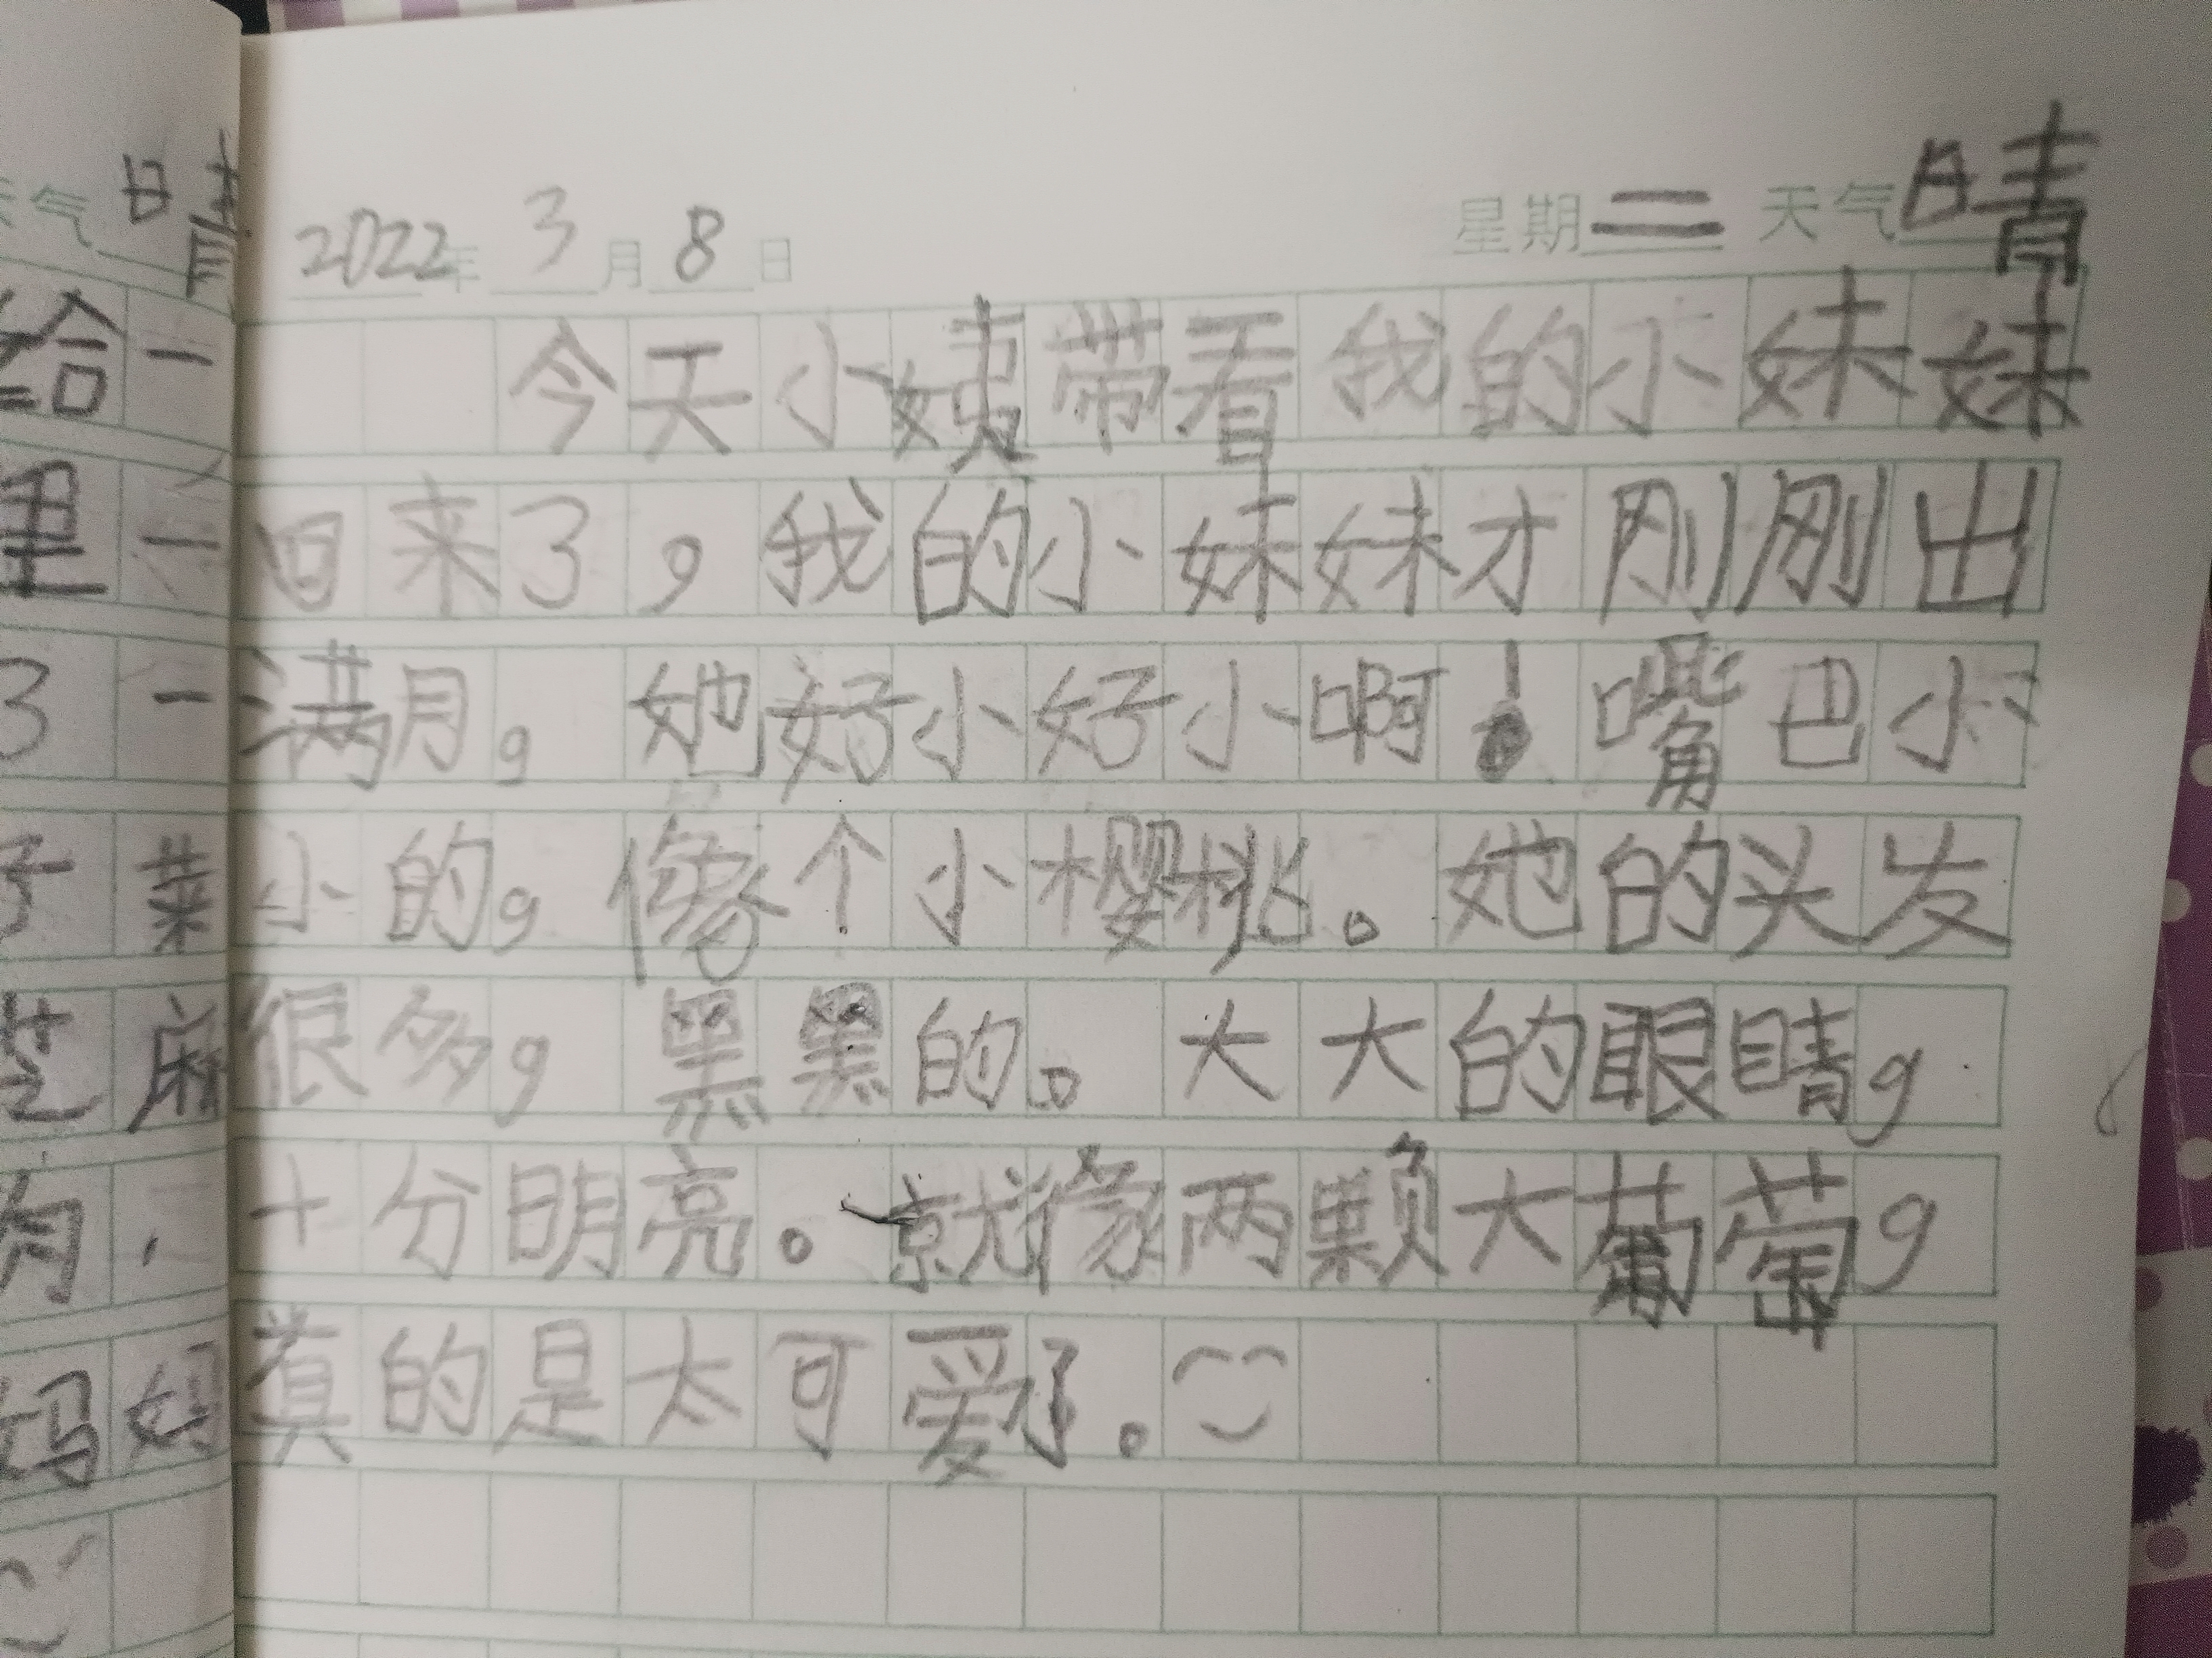 天气晴
给一
里一
3一
子菜
芝麻
妈妈
2022年3月8日 星期二 天气晴
今天小姨带着我的小妹妹
回来了，我的小妹妹才刚刚出
满月，她好小好小啊！嘴巴小
小的，像个小樱桃。她的头发
很多，黑黑的。大大的眼睛，
十分明亮。就像两颗大葡萄，
真的是太可爱了。